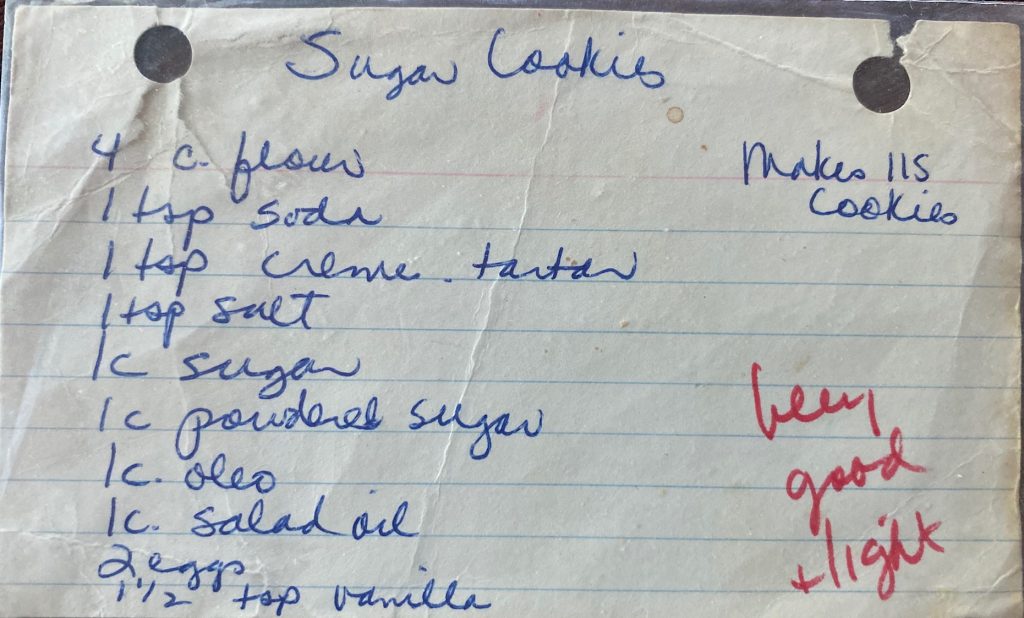 Sugar Cookies
4 c. flour
Makes 115
Cookies
1 tsp soda
1 tsp creme. tartar
1 tsp salt
1c sugar
1c powdered sugar
1c. oleo
1c. salad oil
2 eggs
1 1/2 tsp vanilla
Very
good
+ light